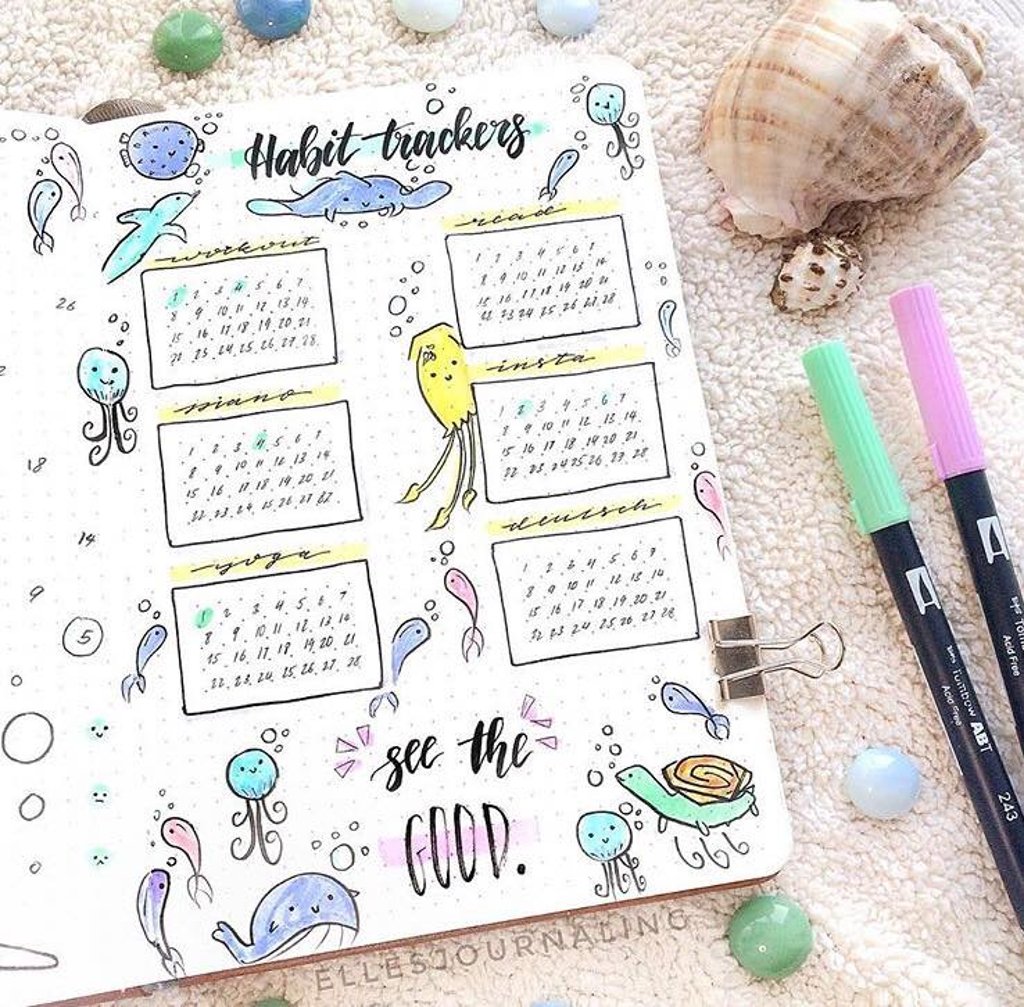 Habit trackers
workout
1 2 3 4 5 6 7
8 9 10 11 12 13 14
15 16 17 18 19 20 21
22 23 24 25 26 27 28
read
1 2 3 4 5 6 7
8 9 10 11 12 13 14
15 16 17 18 19 20 21
22 23 24 25 26 27 28
26
piano
1 2 3 4 5 6 7
8 9 10 11 12 13 14
15 16 17 18 19 20 21
22 23 24 25 26 27 22
insta
1 2 3 4 5 6 7
8 9 10 11 12 13 14
15 16 17 18 19 20 21
22 23 24 25 26 27 28
18
14
yoga
1 2 3 4 5 6 7
8 9 10 11 12 13 14
15 16 17 18 19 20 21
22 23 24 25 26 27 28
deutsch
1 2 3 4 5 6 7
8 9 10 11 12 13 14
15 16 17 18 19 20 21
22 23 24 25 26 27 28
9
5
see the
GOOD.
Tombow ABT
Acid Free
243
Acid Free
ELLESJOURNALING